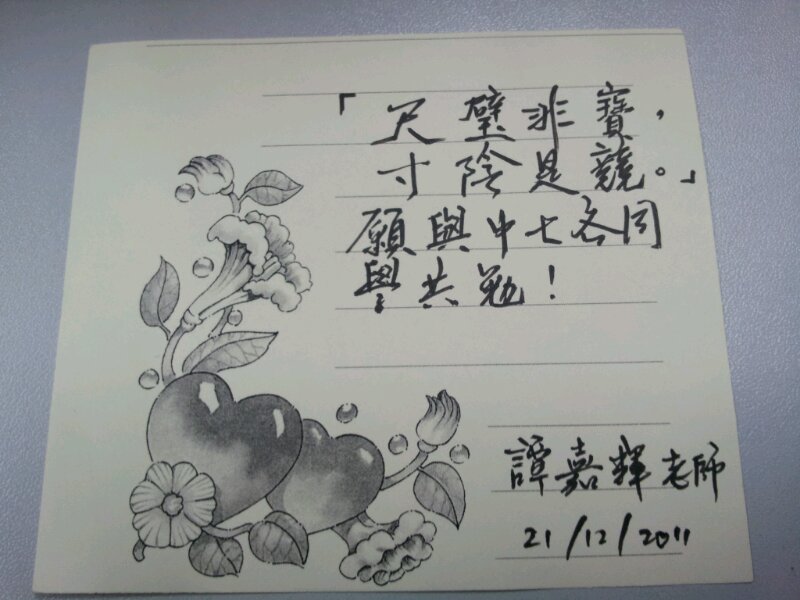 「尺璧非寶，
寸陰是競。」
願與中七各同
學共勉！
譚嘉輝老師
21/12/2011